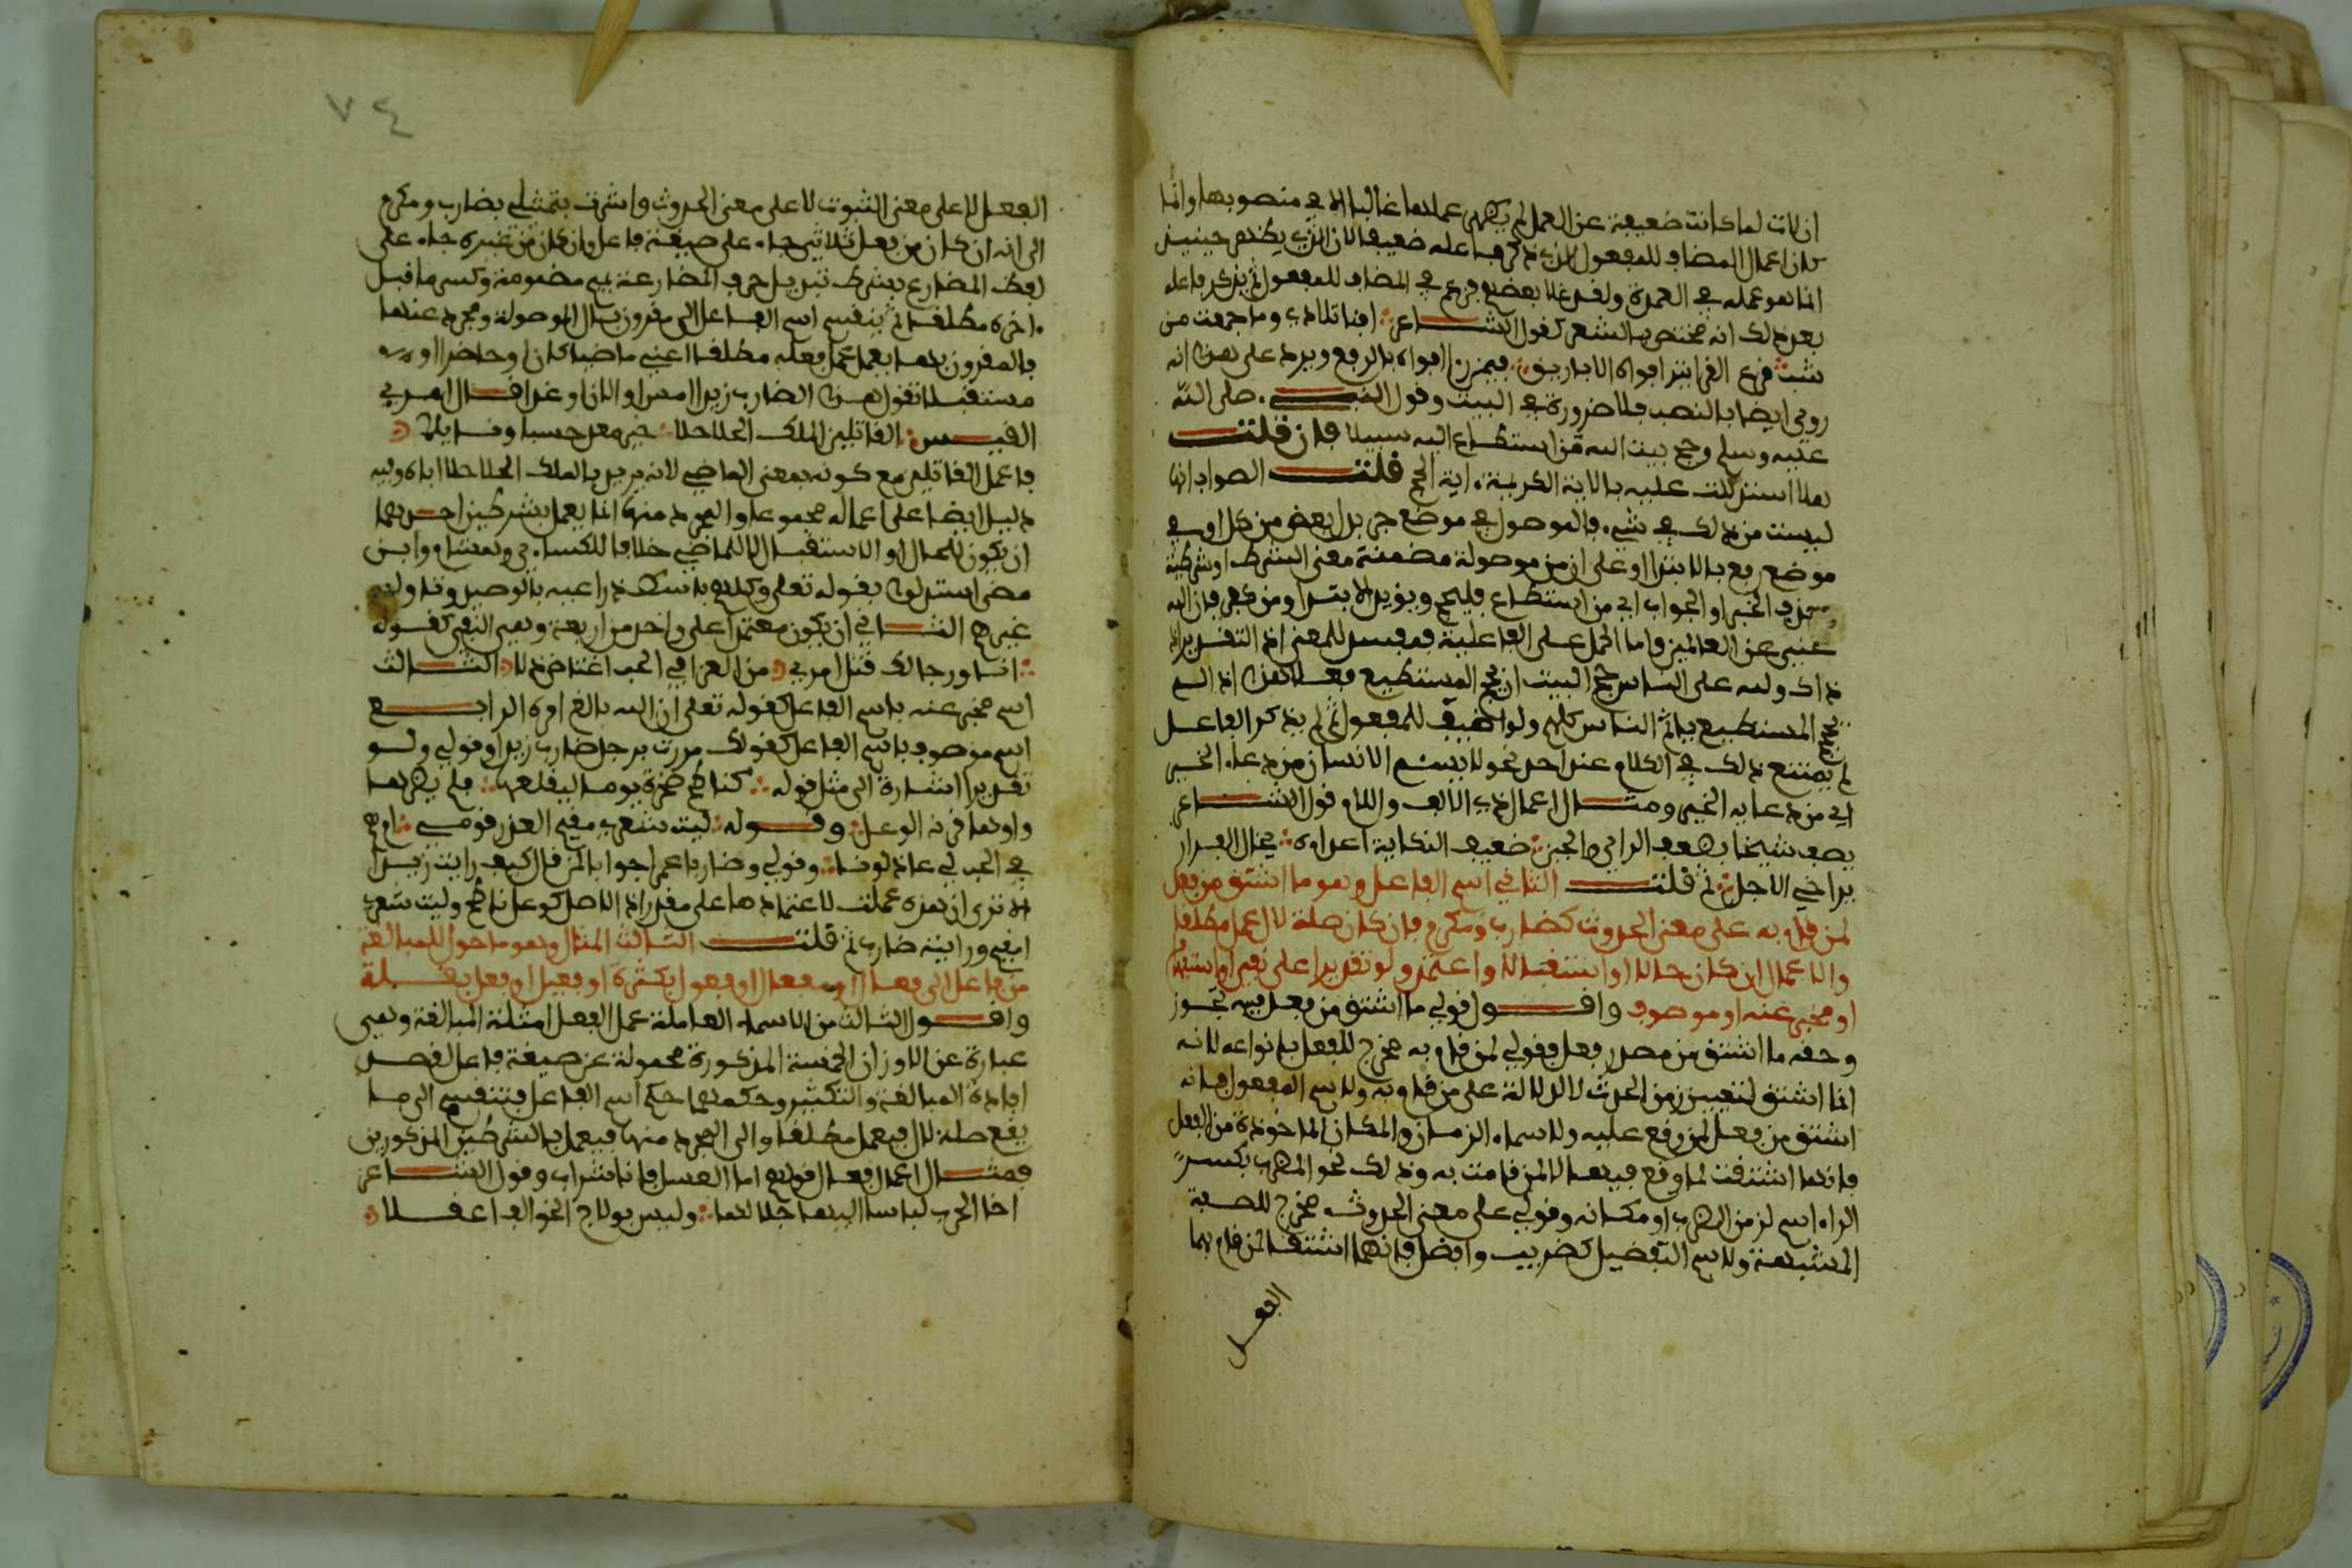 ان لات لما كانت ضعيفة عن العمل لم يظهر عملها غالبا الا في منصوبها وانما
كان اعمال المضاف للمفعول الذي ذكر فاعله ضعيفا لان الذي يظهر حينئذ
انما هو عمله في العمدة ولقد غلا بعضهم فزعم في المضاف للمفعول ثم يذكر فاعله
بعد ذلك انه مختص بالشعر كقول الشاعر افنى تلادي وما جمعت من
نشب قرع القوافيز افواه الاباريق فيمن افواه بالرفع ويرد على هذا انه
روي ايضا بالنصب فلا ضرورة في البيت وقول النبي صلى الله
عليه وسلم وحج بيت الله من استطاع اليه سبيلا فان قلت
هلا استدللت عليه بالاية الكريمة اية الحج قلت الصواب انها
ليست من ذلك في شيء فالموصول في موضع جر بدل بعض من كل او في
موضع رفع بالابتدا او على ان من موصولة مضمنة معنى الشرط او شرطية
وحذف الخبر او الجواب اي من استطاع فليحج ويؤيد الابتدا ومن كفر فان الله
غني عن العالمين واما الحمل على الفاعلية فمفسد للمعنى اذ التقدير اذ
ذاك ولله على الناس حج البيت ان يحج المستطيع فعلى هذا اذا لم
يحج المستطيع ياثم الناس كلهم ولو اضيف للمفعول ثم لم يذكر الفاعل
لم يمتنع ذلك في الكلام عند احد نحو لا يسئم الانسان من دعاء الخير
اي من دعائه الخير ومثال اعمال ذي الالف واللام قول الشاعر
يصف شيخا بضعف الراي والجبن ضعيف النكاية اعداءه يخال الفرار
يراخي الاجل ثم قلت الثاني اسم الفاعل وهو ما اشتق من فعل
لمن قام به على معنى الحدوث كضارب ومكرم فان كان صلة لال عمل مطلقا
والا عمل ان كان حالا او استقبالا واعتمد ولو تقديرا على نفي او استفهام
او مخبر عنه او موصوف واقول قولي ما اشتق من فعل فيه تجوز
وحقه ما اشتق من مصدر فعل وقولي لمن قام به مخرج للفعل بانواعه لانه
انما اشتق لتعيين زمن الحدث لا للدلالة على من قام به ولاسم المفعول فانه
اشتق من فعل لمن وقع عليه ولاسماء الزمان والمكان الماخوذة من الفعل
فانها اشتقت لما وقع فيها لا لمن قامت به وذلك نحو المضرب بكسر
الراء اسم لزمن الضرب او مكانه وقولي على معنى الحدوث مخرج للصفة
المشبهة ولاسم التفضيل كضريب وافضل فانهما اشتقا لمن قام بهما
الفعل
٧٤
الفعل لا على معنى الثبوت لا على معنى الحدوث واشرت بتمثيلي بضارب ومكرم
الى انه ان كان من فعل ثلاثي جاء على صيغة فاعل وان كان من غيره جاء على
لفظ المضارع بشرط تبديل حرف المضارعة بميم مضمومة وكسر ما قبل
اخره مطلقا ثم ينقسم اسم الفاعل الى مقرون بال الموصولة ومجرد عنها
فالمقرون بها يعمل عمل فعله مطلقا اعني ماضيا كان او حاضرا او
مستقبلا تقول هذا الضارب زيدا امس او الان او غدا قال امرئ
القيس القاتلين الملك الحلاحلا خير معد حسبا ونايلا
فاعمل القاتلين مع كونه بمعنى الماضي لانه يريد بالملك الحلاحلا اباه وفيه
دليل ايضا على اعماله مجموعا والمجرد منها انما يعمل بشرطين احدهما
ان يكون للحال او الاستقبال لا للماضي خلافا للكسائي وهشام وابن
مضى استدلوا بقوله تعلى وكلبهم باسط ذراعيه بالوصيد وتاوله
غيرهم الثاني ان يكون معتمدا على واحد من اربعة وهي النفي كقوله
انا ورجالك قتل امرئ من العز في حبك اعتاض ذلا الثالث
اسم مخبر عنه باسم الفاعل كقوله تعلى ان الله بالغ امره الرابع
اسم موصوف باسم الفاعل كقولك مررت برجل ضارب زيدا وقولي ولو
تقديرا اشارة الى مثل قوله كناطح صخرة يوما ليقلعها فلم يضرها
واوهى قرنه الوعل وقوله ليت شعري مقيم العذر قومي ام هم
في الحب لي عاذلونا وقولي وضاربا عمرا جوابا لمن قال كيف رايت زيدا
الا ترى ان هذه عملت لاعتمادها على مقدر اذ الاصل كوعل ناطح وليت شعري
امقيم ورايته ضاربا ثم قلت الثالث المثال وهو ما حول للمبالغة
من فاعل الى فعال او مفعال او فعول بكثرة او فعيل او فعل بقلة
واقول الثالث من الاسماء العاملة عمل الفعل امثلة المبالغة وهي
عبارة عن الاوزان الخمسة المذكورة محمولة عن صيغة فاعل لقصد
افادة المبالغة والتكثير وحكمها حكم اسم الفاعل فتنقسم الى ما
يقع صلة لال فيعمل مطلقا والى المجرد منها فيعمل بالشرطين المذكورين
فمثال اعمال فعال قولهم اما العسل فانا شراب وقول الشاعر
اخا الحرب لباسا اليها جلالها وليس بولاج الخوالف اعقلا